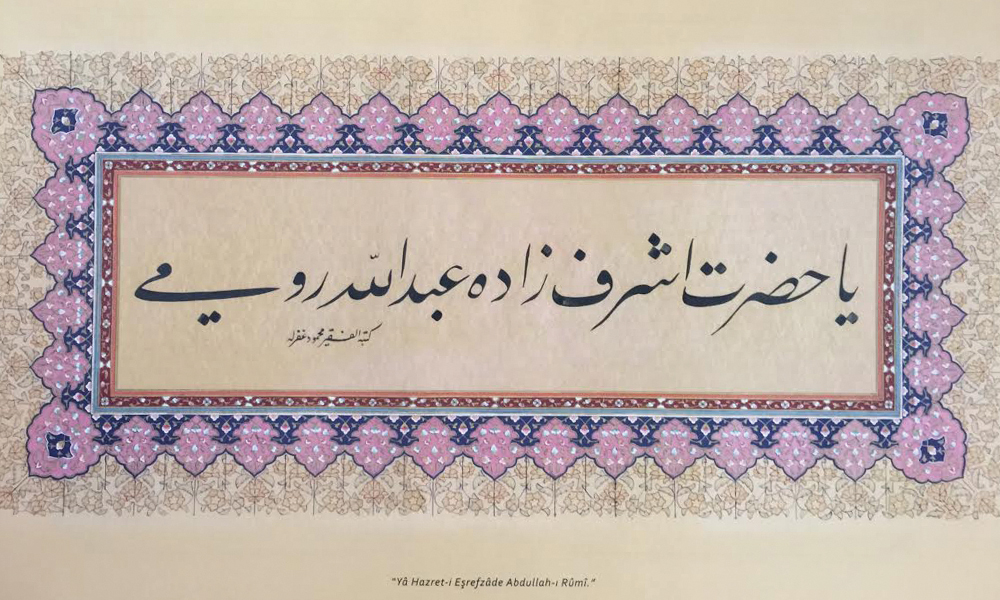 يا حضرت اشرف زاده عبد الله رومي
كتبه الفقير محمود غفرله
"Yâ Hazret-i Eşrefzâde Abdullah-ı Rûmî."